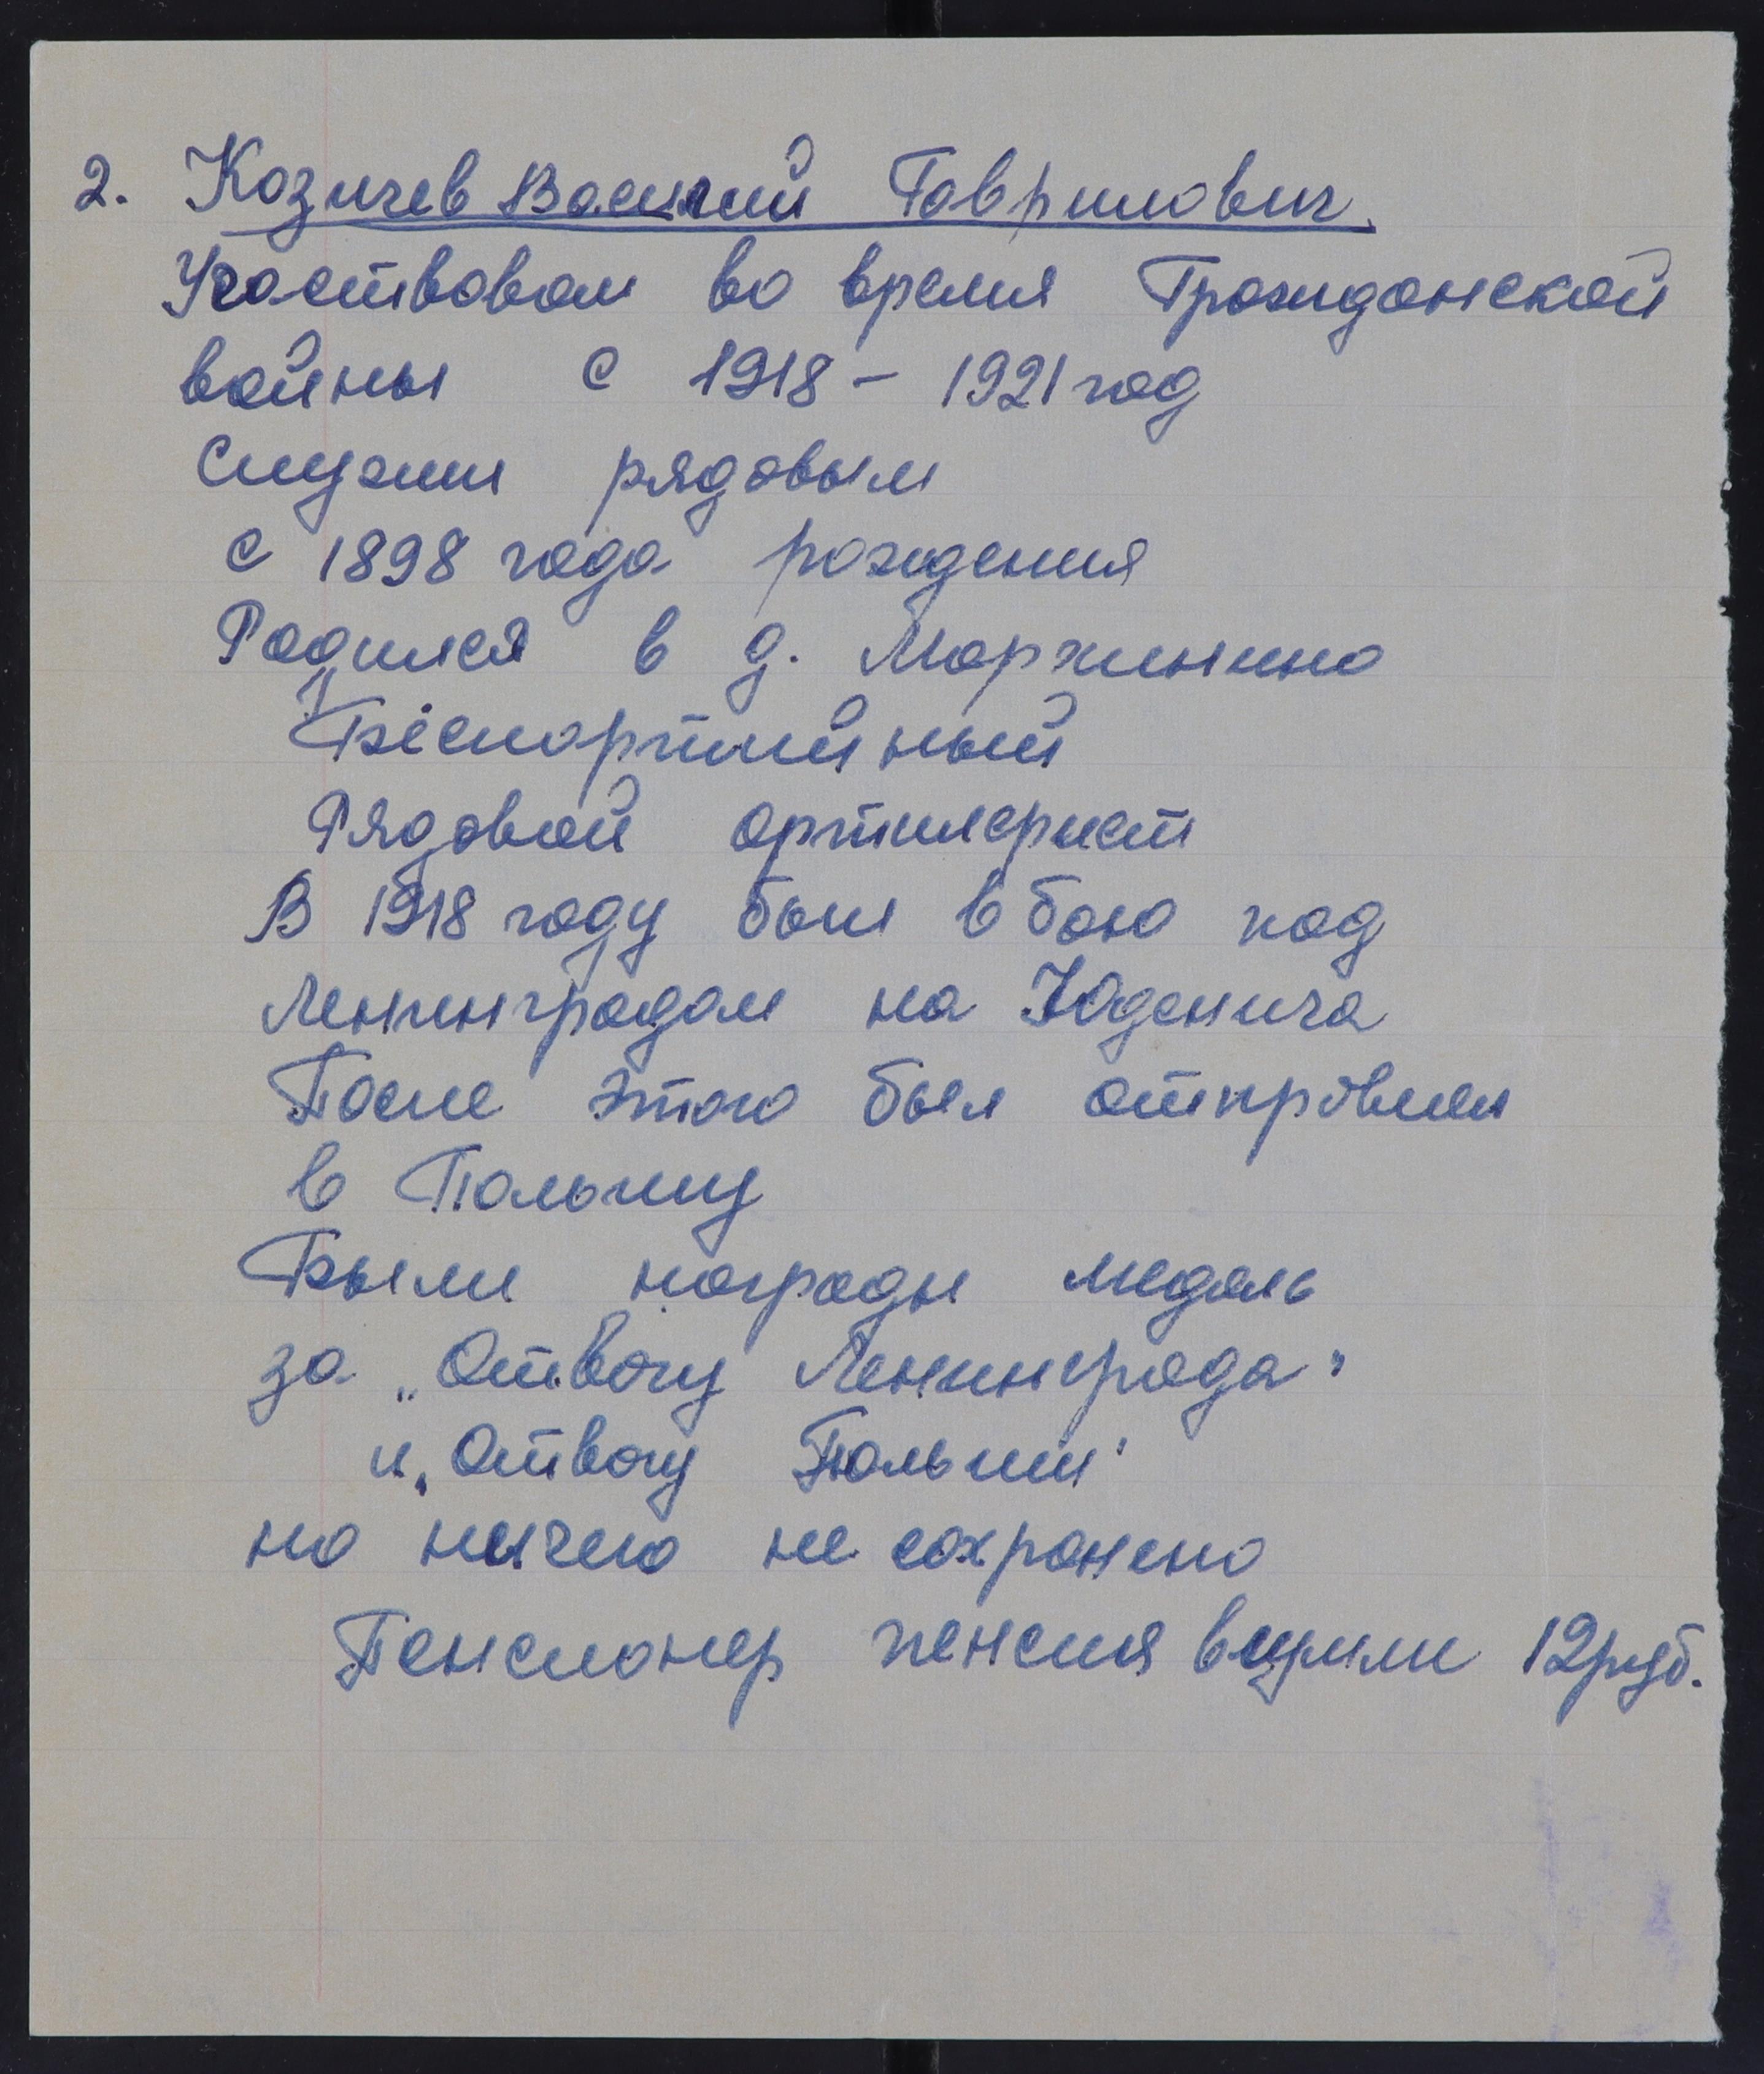 2. Козичев Василий Гаврилович.
Участвовал во время Гражданской
войны с 1918 – 1921 год
Служил рядовым
с 1898 года рождения
Родился в д. Мархинино
Беспартийный
Рядовой артилерист
В 1918 году был в бою под
Ленинградом на Юденича
После этого был отправлен
в Польшу
Были награды медаль
за „Отвагу Ленинграда"
и „Отвагу Польши"
но ничего не сохранено
Пенсионер пенсия в сумме 12 руб.